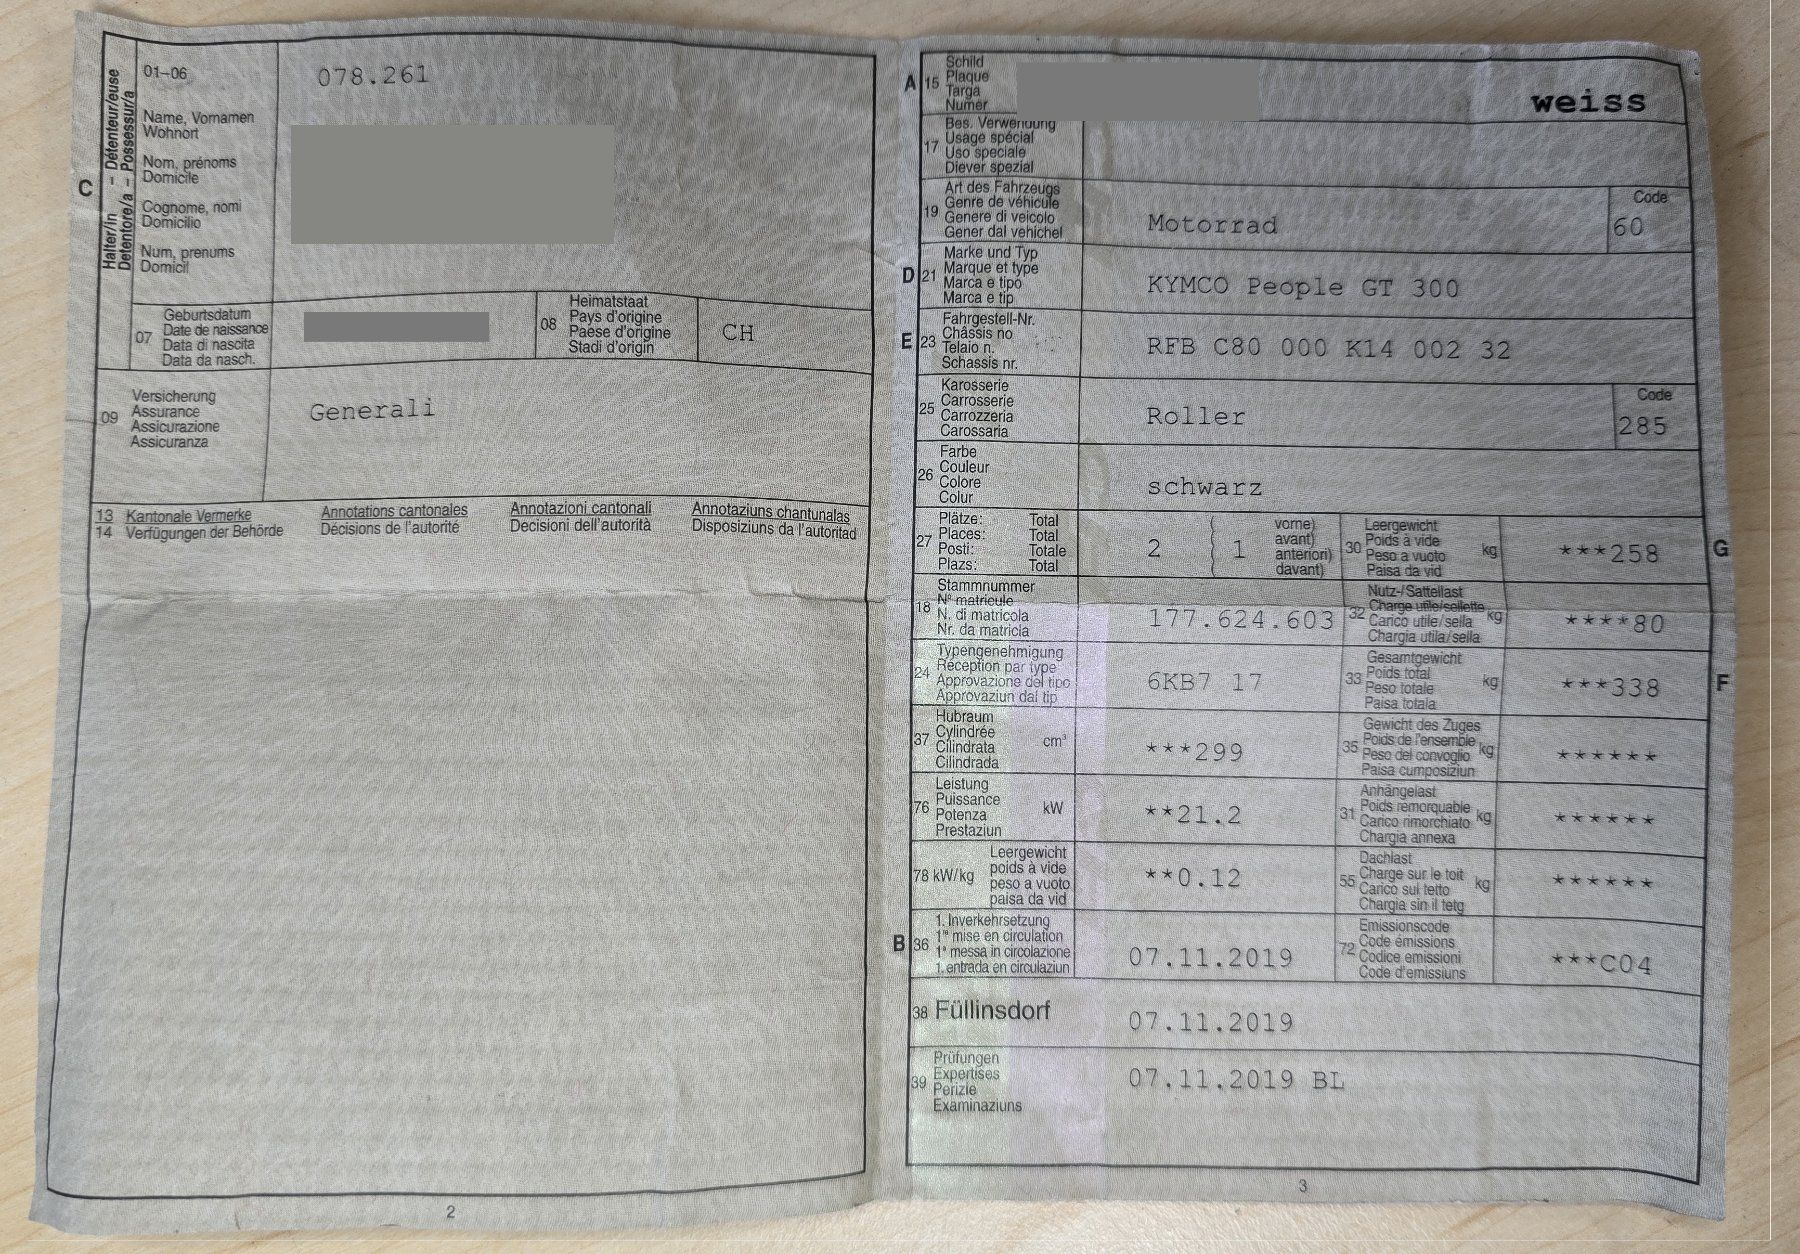 Halter/in – Détenteur/euse
Detentore/a – Possessur/a
C
01–06
078.261
Name, Vornamen
Wohnort
Nom, prénoms
Domicile
Cognome, nomi
Domicilio
Num, prenums
Domicil
07
Geburtsdatum
Date de naissance
Data di nascita
Data da nasch.
08
Heimatstaat
Pays d'origine
Paese d'origine
Stadi d'origin
CH
09
Versicherung
Assurance
Assicurazione
Assicuranza
Generali
13 Kantonale Vermerke Annotations cantonales Annotazioni cantonali Annotaziuns chantunalas
14 Verfügungen der Behörde Décisions de l'autorité Decisioni dell'autorità Disposiziuns da l'autoritad
2
A 15
Schild
Plaque
Targa
Numer
weiss
17
Bes. Verwendung
Usage spécial
Uso speciale
Diever spezial
19
Art des Fahrzeugs
Genre de véhicule
Genere di veicolo
Gener dal vehichel
Motorrad
Code
60
D 21
Marke und Typ
Marque et type
Marca e tipo
Marca e tip
KYMCO People GT 300
E 23
Fahrgestell-Nr.
Châssis no
Telaio n.
Schassis nr.
RFB C80 000 K14 002 32
25
Karosserie
Carrosserie
Carrozzeria
Carossaria
Roller
Code
285
26
Farbe
Couleur
Colore
Colur
schwarz
27
Plätze: Total
Places: Total
Posti: Totale
Plazs: Total
2 { 1
vorne)
avant)
anteriori)
davant)
30
Leergewicht
Poids à vide
Peso a vuoto
Paisa da vid
kg
***258
G
18
Stammnummer
N° matricule
N. di matricola
Nr. da matricla
177.624.603
32
Nutz-/Sattellast
Charge utile/sellette
Carico utile/sella
Chargia utila/sella
kg
****80
24
Typengenehmigung
Réception par type
Approvazione del tipo
Approvaziun dal tip
6KB7 17
33
Gesamtgewicht
Poids total
Peso totale
Paisa totala
kg
***338
F
37
Hubraum
Cylindrée
Cilindrata
Cilindrada
cm³
***299
35
Gewicht des Zuges
Poids de l'ensemble
Peso del convoglio
Paisa cumposiziun
kg
******
76
Leistung
Puissance
Potenza
Prestaziun
kW
**21.2
31
Anhängelast
Poids remorquable
Carico rimorchiato
Chargia annexa
kg
******
78 kW/kg
Leergewicht
poids à vide
peso a vuoto
paisa da vid
**0.12
55
Dachlast
Charge sur le toit
Carico sul tetto
Chargia sin il tetg
kg
******
B 36
1. Inverkehrsetzung
1re mise en circulation
1a messa in circolazione
1. entrada en circulaziun
07.11.2019
72
Emissionscode
Code émissions
Codice emissioni
Code d'emissiuns
***C04
38 Füllinsdorf
07.11.2019
39
Prüfungen
Expertises
Perizie
Examinaziuns
07.11.2019 BL
3